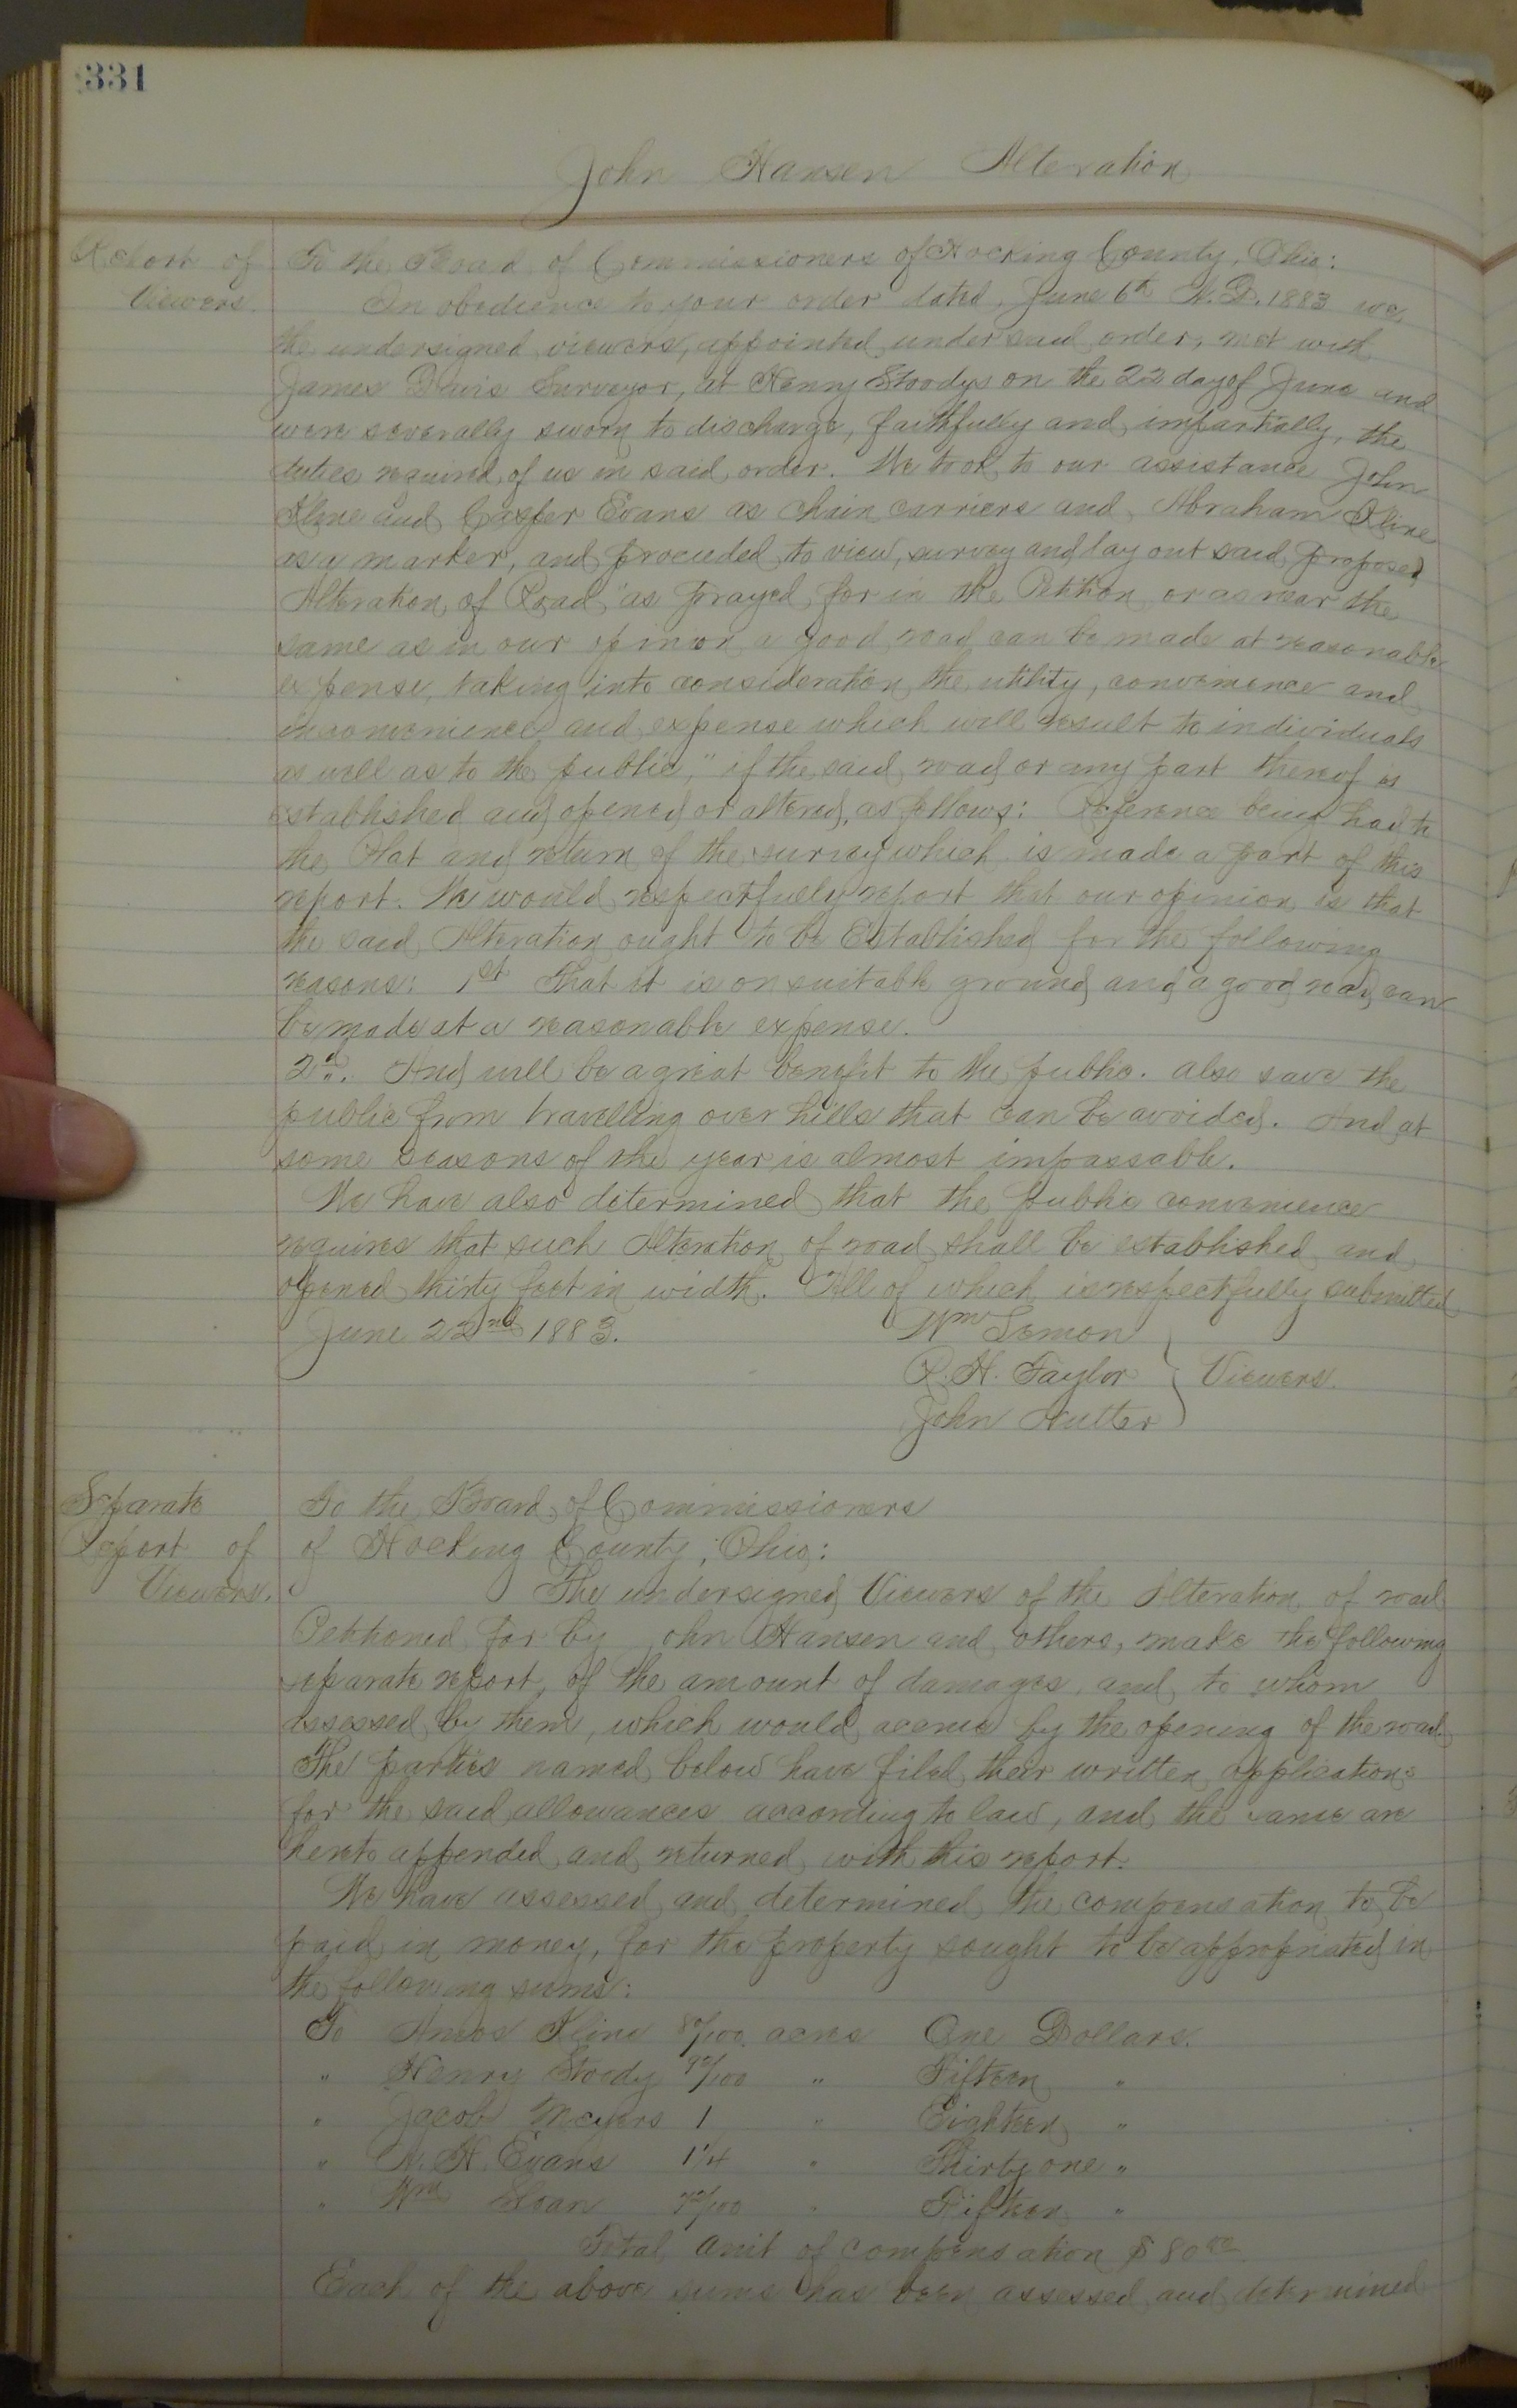 331
John Hansen Alteration
Report of Viewers.
To the Board of Commissioners of Hocking County, Ohio:
In obedience to your order dated June 6th A.D. 1883 we,
the undersigned viewers, appointed under said order, met with
James Davis Surveyor, at Henry Stoodys on the 22 day of June and
were severally sworn to discharge, faithfully and impartially, the
duties required of us in said order. We took to our assistance John
Kline and Casper Evans as chain carriers and Abraham Kline
as a marker, and proceeded to view, survey and lay out said proposed
Alteration of Road, "as prayed for in the Petition or as near the
same as in our opinion a good road can be made at reasonable
expense, taking into consideration the utility, convenience and
inconvenience and expense which will result to individuals
as well as to the public," if the said road or any part thereof is
established and opened or altered, as follows: Reference being had to
the Plat and return of the survey which is made a part of this
report. We would respectfully report that our opinion is that
the said Alteration ought to be Established for the following
reasons: 1st That it is on suitable ground and a good road can
be made at a reasonable expense.
2nd. And will be a great benefit to the public. also save the
public from travelling over hills that can be avoided. And at
some seasons of the year is almost impassable.
We have also determined that the public convenience
requires that such Alteration of road shall be established and
opened thirty feet in width. All of which is respectfully submitted
June 22nd 1883.
Wm Lemon
R. H. Taylor } Viewers.
John Nutter
Separate
Report of
Viewers.
To the Board of Commissioners
of Hocking County, Ohio:
The undersigned Viewers of the Alteration of road
Petitioned for by John Hansen and others, make the following
separate report, of the amount of damages, and to whom
assessed by them, which would accrue by the opening of the road.
The parties named below have filed their written applications
for the said allowances according to law, and the same are
hereto appended and returned with this report.
We have assessed and determined the compensation to be
paid in money, for the property sought to be appropriated in
the following sums:
To Amos Kline 80/100 acres One Dollars.
" Henry Stoody 90/100 " Fifteen "
" Jacob Meyers 1 " Eighteen "
" N. H. Evans 1 1/4 " Thirty one "
" Wm Sloan 70/100 " Fifteen "
Total amt of compensation $80 00
Each of the above sums has been assessed and determined